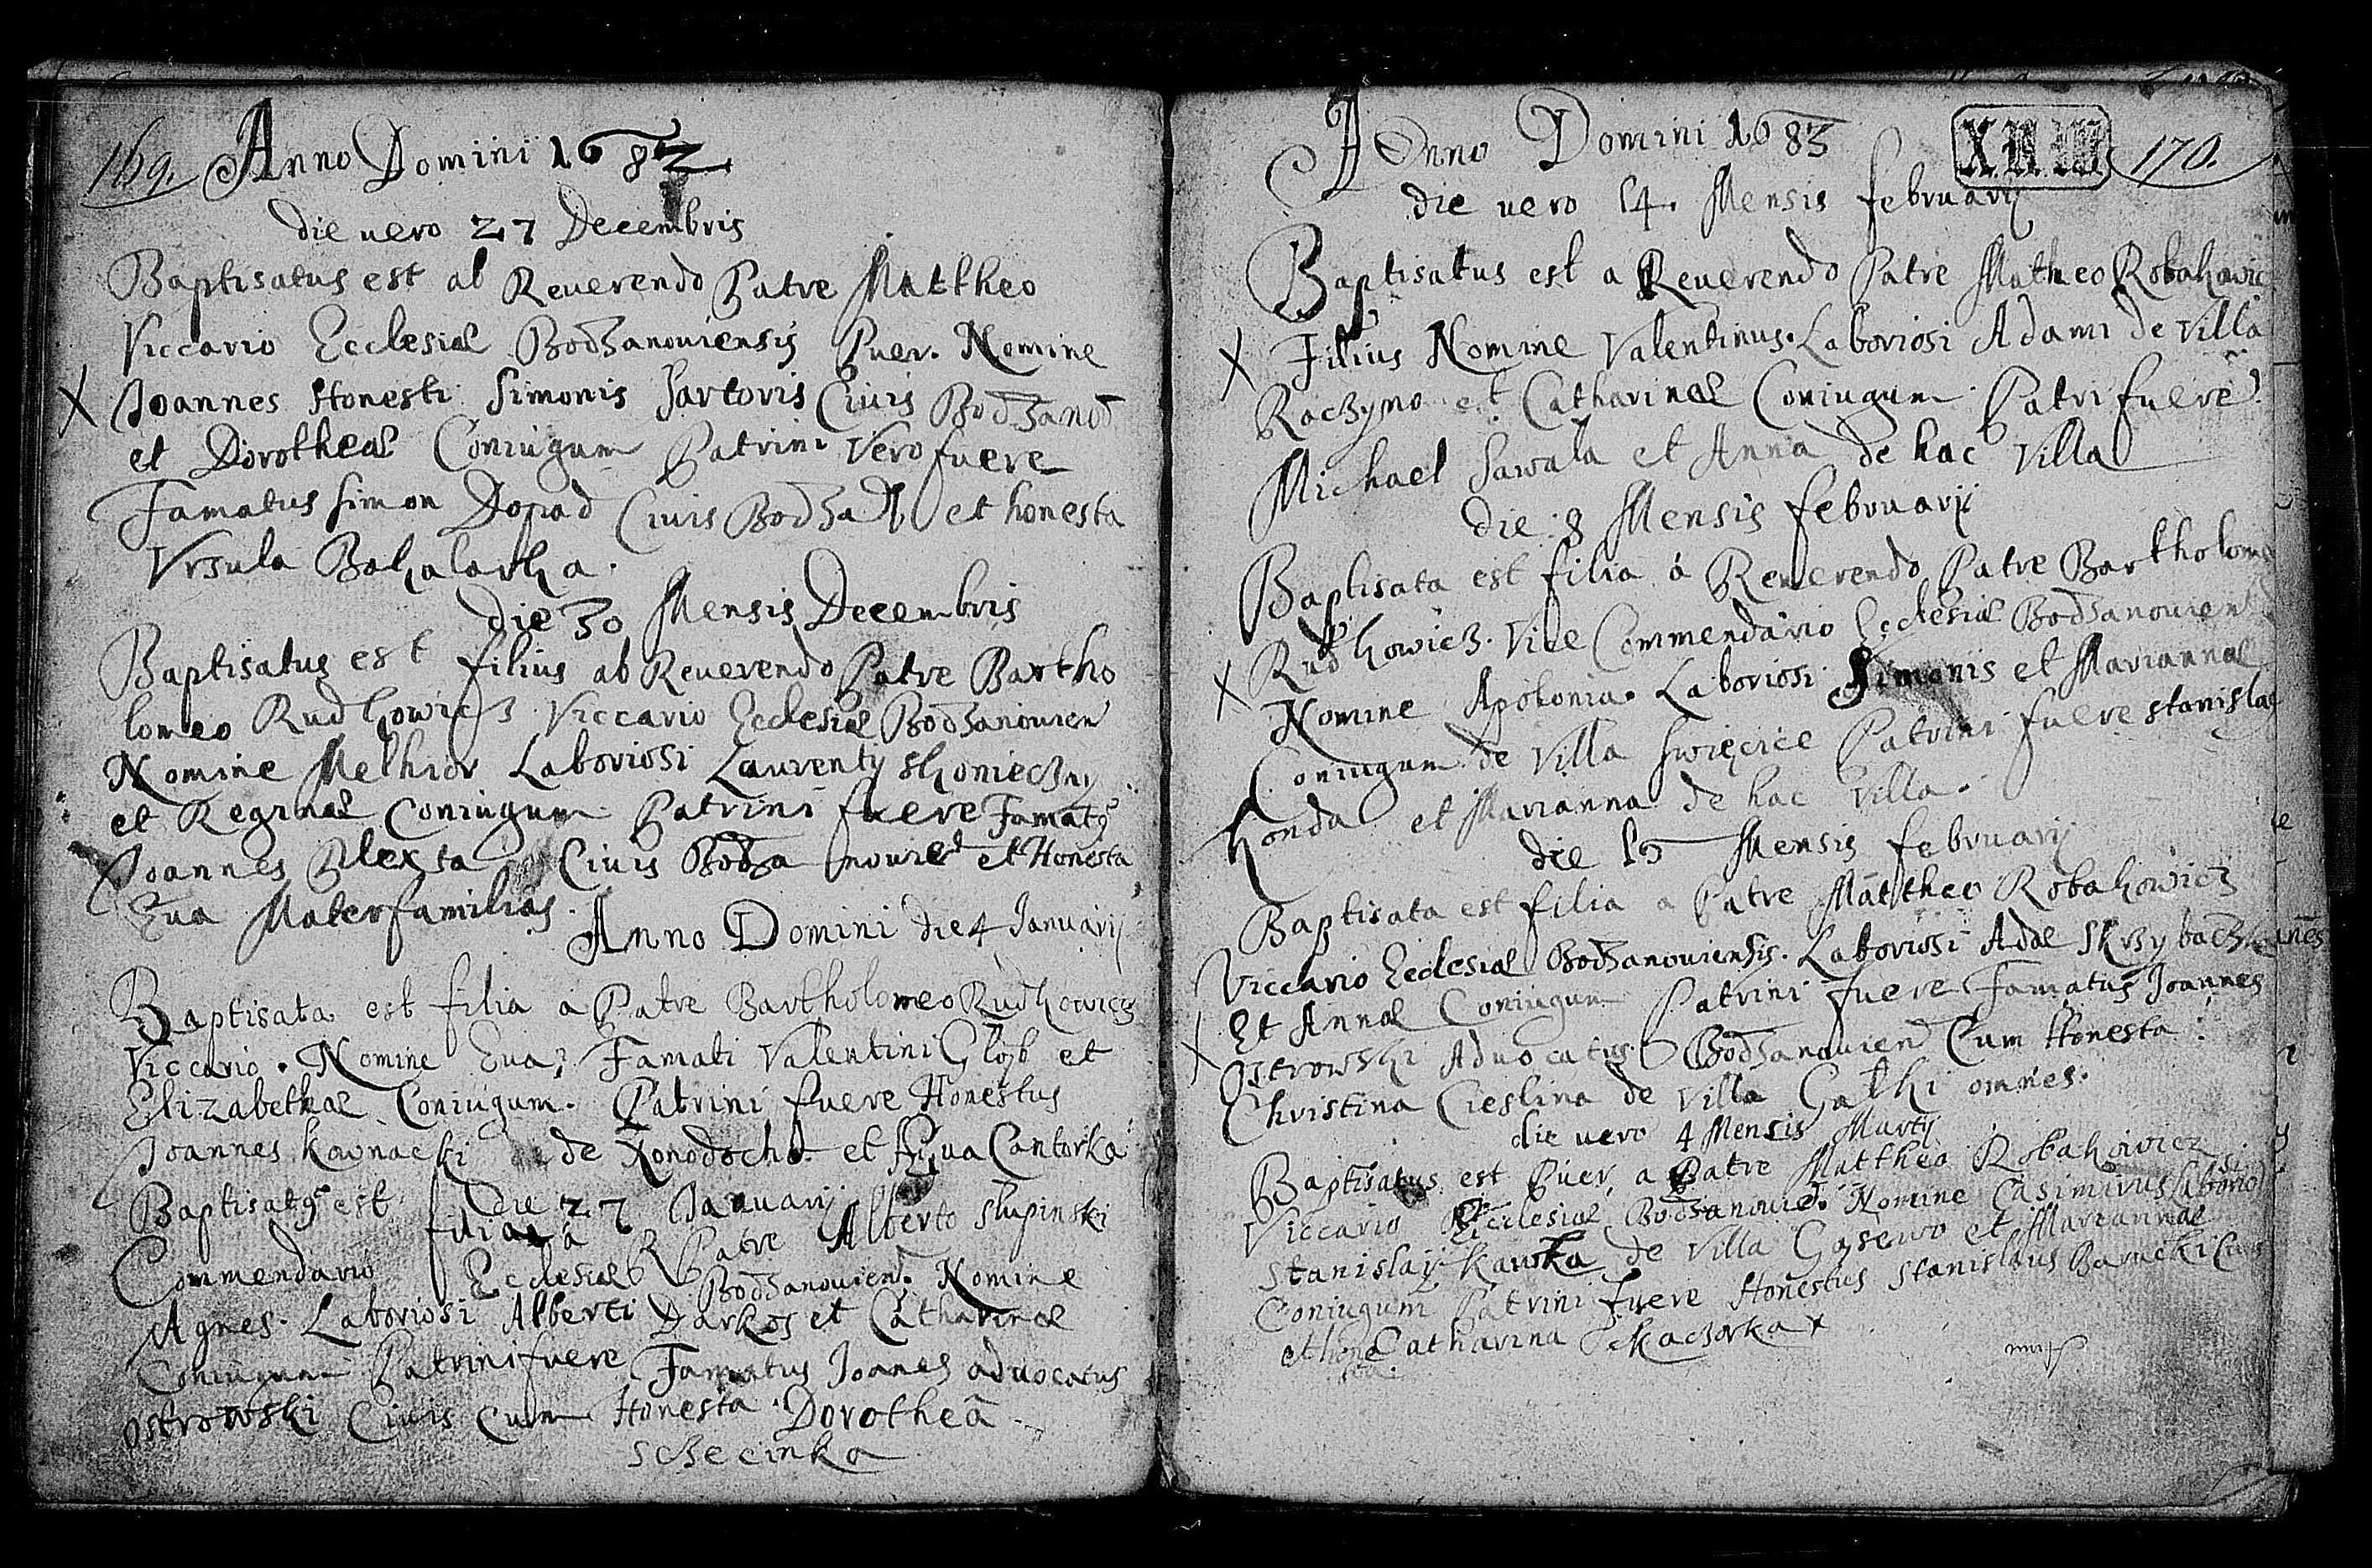 169. Anno Domini 1682
die uero 27 Decembris
Baptisatus est ab Reuerendo Patre Mattheo
Viccario Ecclesiae Bodzanouiensis Puer. Nomine
X Joannes Honesti Simonis Sartoris Ciuis Bodzanod
et Dorotheae Coniugum Patrini Vero fuere
Famatus Simon Dopad Ciuis Bodza et honesta
Vrsula Bakalarka.
die 30 Mensis Decembris
Baptisatus est filius ab Reuerendo Patre Bartho
lomeo Rudkowicz Viccario Ecclesiae Bodzanouien
Nomine Melhior Laboriosi Laurentij Skonieczny
et Reginae Coniugum Patrini fuere Famatq
Joannes Plexta Ciuis Bodza nouied et Honesta
Eua Materfamilias.
Anno Domini die 4 Januarij
Baptisata est filia a Patre Bartholomeo Rudkowicz
Viccario. Nomine Eua, Famati Valentini Głąb et
Elizabethae Coniugum. Patrini fuere Honestus
Joannes Kawnacki de Xonodocho et Cantorka
die 27 Januarij
Baptisatq est filia a R Patre Alberto Slupinski
Commendario Ecclesiae Bodzanouiend. Nomine
Agnes. Laboriosi Alberti Darkos et Catharinae
Coniugum Patrini fuere Famatus Joanes aduocatus
Ostrowski Ciuis cum Honesta Dorothea
Schecinka
Anno Domini 1683 X.II.III 170.
die uero 14. Mensis februarij
Baptisatus est a Reuerendo Patre Matheo Robakowic
X Filius Nomine Valentinus. Laboriosi Adami de Villa
Raczyno et Catharinae Coniugum Patri fuere
Michael Sawala et Anna de hac Villa
die 8 Mensis februarij
Baptisata est filia á Reuerendo Patre Bartholome
X Rudkowicz. Vice Commendario Ecclesiae Bodzanouien
Nomine Apolonia. Laboriosi Simonis et Mariannae
Coniugum de Villa Swięcice Patrini fuere Stanislae
Konda et Marianna de hac Villa.
die 15 Mensis februarij
Baptisata est filia a Patre Mattheo Robakowicz
Viccario Ecclesiae Bodzanouiensis. Laboriosi Adae Skrzybacz
Et Annae Coniugum Patrini fuere Famatus Joannes
X Ostrowski Aduocatus Bodzanouiend Cum Honesta
Christina Cieslina de Villa Gatki omnes.
die uero 4 Mensis Martij
Baptisatus est Puer, a Patre Mattheo Robakowicz
Viccario Ecclesiae Bodzanouied. Nomine Casimirus Laboriosi
Stanislaij Kawka de Villa Gąsewo et Mariannae
Coniugum Patrini fuere Honestus Stanislaus Baracki Ciuis
et honesta Catharina Skaczorka x